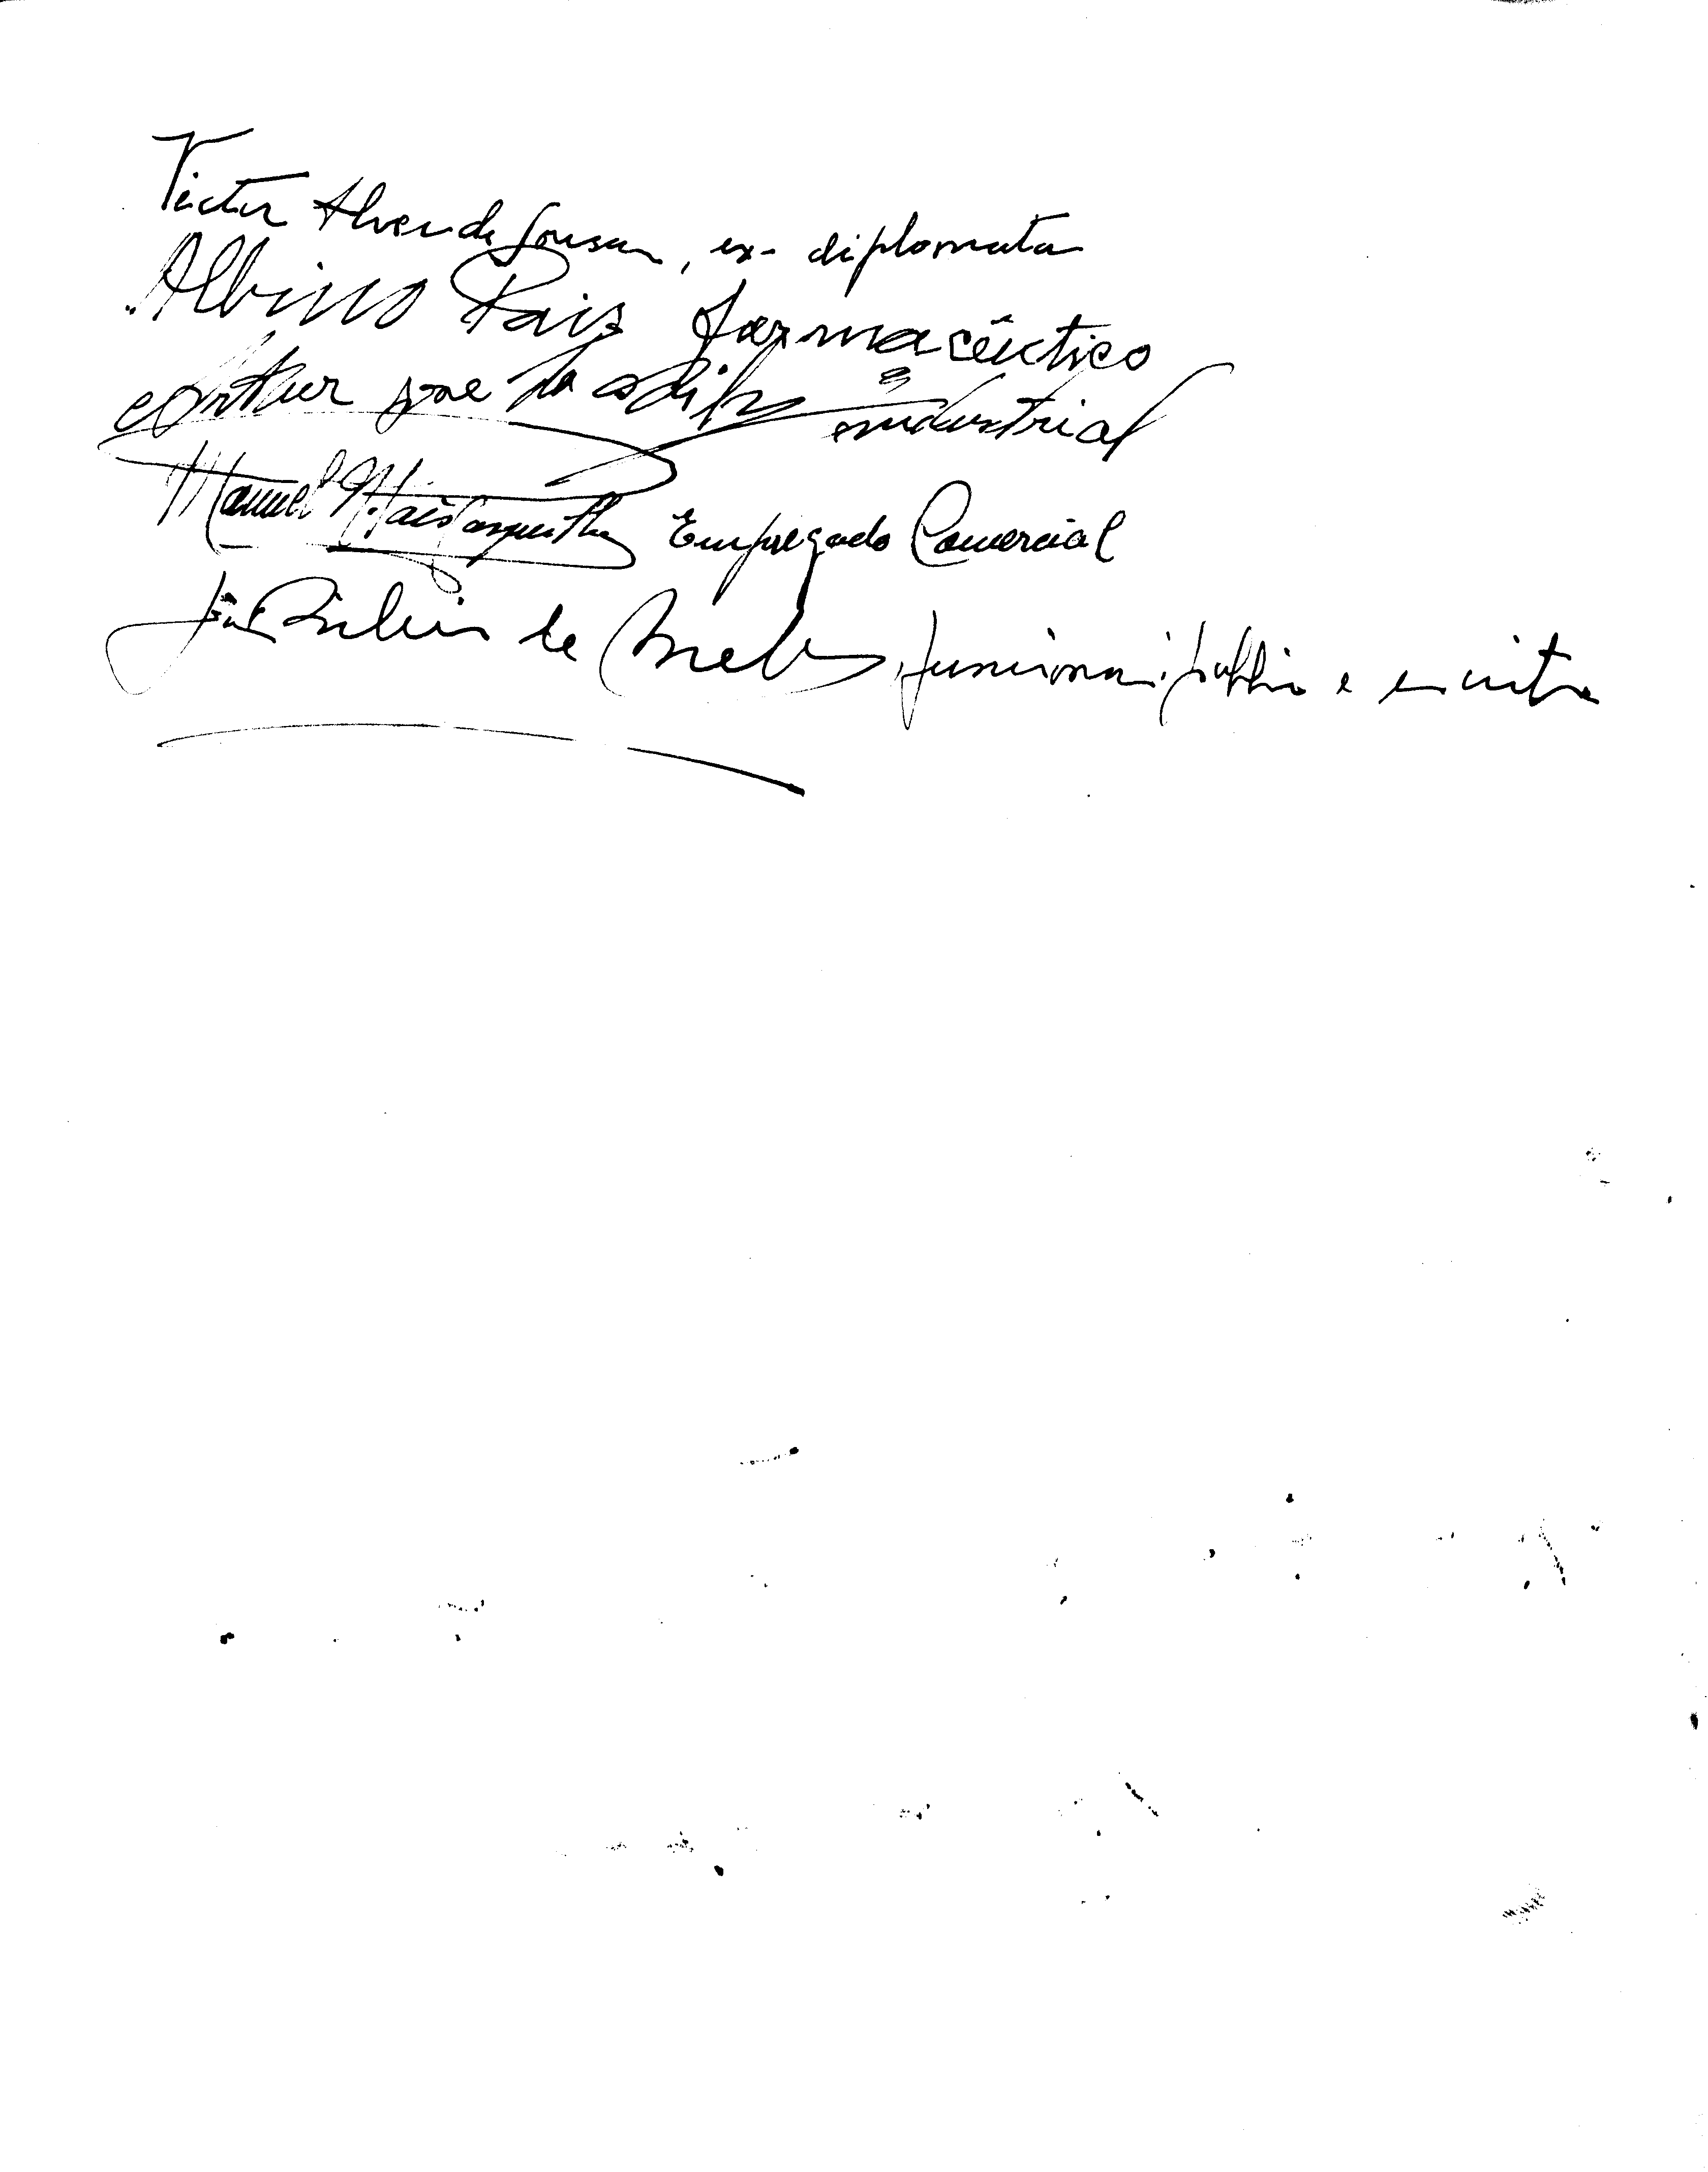 Victor Alves de Sousa, ex-diplomata
Albino Pais farmacêutico
Arthur industrial
Manuel Empregado Comercial
de Melo, funcionario publico e escritor